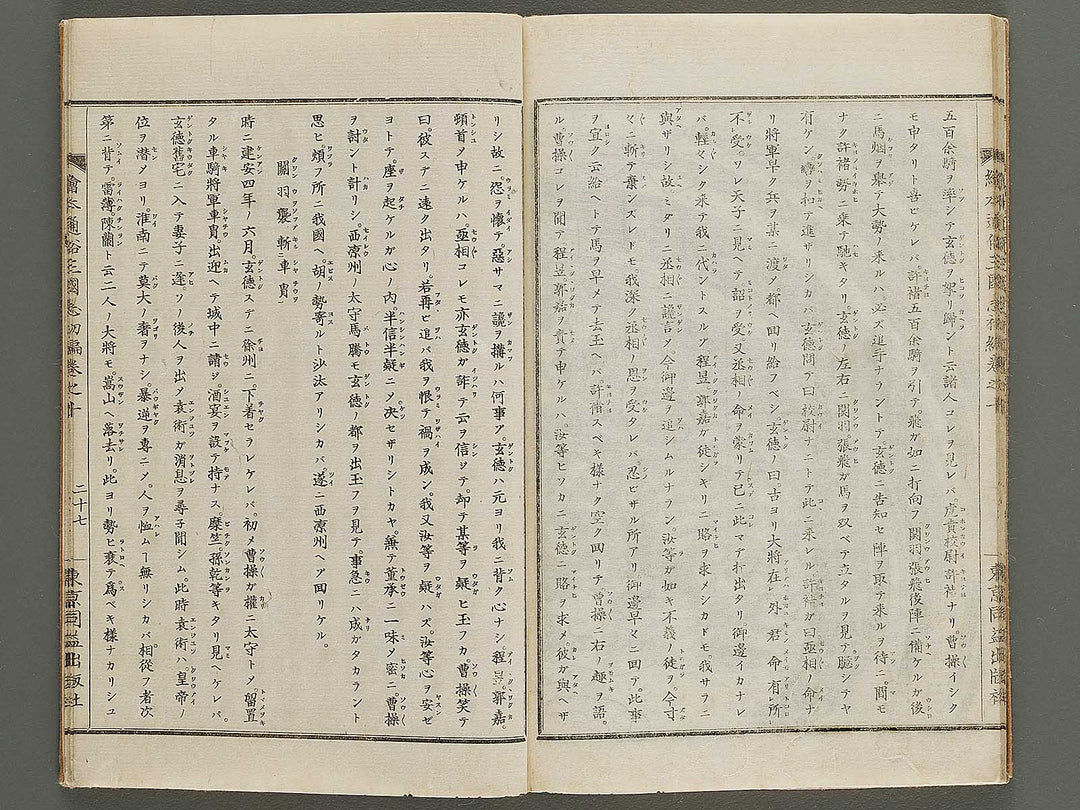 五百余騎ヲ率シテ玄德ヲ搦リ歸ントス諸人コレヲ見レバ虎賁校尉許褚ナリ曹操イシク
モ申タリト喜ビケレバ許褚五百余騎ヲ引テ飛ガ如ニ打向フ関羽張飛後陣ニ備ケルガ後
ニ馬烟ヲ擧テ大勢ノ来ルハ必ズ追手ナラントテ玄德ニ告知セ陣ヲ取テ来ルヲ待ニ間モ
ナク許褚勢ニ乗テ馳キタリ玄德ノ左右ニ関羽張飛ガ馬ヲ双ベテ立タルヲ見テ臆シテヤ
有ケン轡ヲ和テ進ザリシカバ玄德問テ曰校尉ナニトテ此ニ来レル許褚ガ曰丞相ノ命ナ
リ將軍早ク兵ヲ某ニ渡ノ都ヘ回リ給フベシ玄德ノ曰古ヨリ大將在レ外君命有レ所
不受ソレ天子ニ見ヘテ詔ヲ受又丞相ノ命ヲ蒙リテ已ニ此マデ打出リ御邊イカナレ
バ輕々シク来テ我ニ代ントスルゾ程昱郭嘉ガ徒シキリニ賂ヲ求メシカドモ我サラニ
與ザリシ故ニミダリニ丞相ニ讒言ノ今御邊ヲ追シムルナラン汝等ガ如キ不義ノ徒ヲ今寸
々ニ斬テ棄ンズレドモ我深ク丞相ノ恩ヲ受タレバ忍ビザル所アリ御邊早々ニ回テ此事
ヲ宜ク云給ヘトテ馬ヲ早メテ去玉ヘバ許褚スベキ様ナク空ク回リテ曹操ニ右ノ趣ヲ語
ル曹操コレヲ聞テ程昱郭嘉ヲ責テ申ケルハ汝等ヒソカニ玄德ニ賂ヲ求メ彼ガ與ヘザ
リシ故ニ怨ヲ懐テ惡サマニ讒ヲ搆ルハ何事ゾ玄德ハ元ヨリ我ニ背ク心ナシ程昱郭嘉
頓首ノ申ケルハ丞相コレモ亦玄德ガ詐テ云ヲ信ジテ却テ某等ヲ疑ヒ玉フカ曹操笑テ
曰彼スデニ遠ク出タリ若再ビ追バ我ヲ恨テ禍ヲ成ン我又汝等ヲ疑ハズ汝等心ヲ安ゼ
ヨトテ座ヲ起ケルガ心ノ内半信半疑ニノ決セザリシトカヤ無テ董承ニ一味ノ密ニ曹操
ヲ討ント計リシ西凉州ノ太守馬騰モ玄德ノ都ヲ出玉フヲ見テ事急ニハ成ガタカラント
思ヒ煩フ所ニ我國ヘ胡ノ勢寄ルト沙汰アリシカバ遂ニ西凉州ヘゾ回リケル
關羽襲斬車冑
時ニ建安四年ノ六月玄德スデニ徐州ニ下着セラレケレバ初メ曹操ガ權ニ太守トノ留置
タル車騎將軍車冑出迎ヘテ城中ニ請ジ酒宴ヲ設テ持ナス糜竺孫乾等キタリ見ヘケレバ
玄德舊宅ニ入テ妻子ニ逢ソノ後人ヲ出ノ袁術ガ消息ヲ尋子聞シム此時袁術ハ皇帝ノ
位ヲ潜メヨリ淮南ニテ莫大ノ奢ヲナシ暴逆ヲ專ニノ人ヲ恤ムヿ無リシカバ相從フ者次
第ニ背テ雷薄陳蘭ト云二人ノ大將モ嵩山ヘ落去リ此ヨリ勢ヒ衰テ爲ベキ様ナカリシユ
繪本通俗三國志初編卷之十
二十七
東京同益出版社